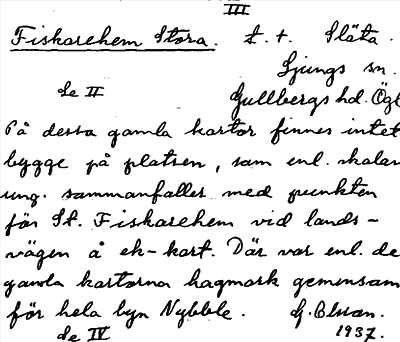 III
Fiskarehem Stora. t. t. Släta.
Ljungs sn.
Se II Gullbergs hd. Ögl
På dessa gamla kartor finnes intet
bygge på platsen, som enl. skalan
ung. sammanfaller med punkten
för St. Fiskarehem vid lands-
vägen å ek-kart. Där var enl. de
gamla kartorna hagmark gemensam
för hela byn Nybble. G. Olsson.
Se IV 1937.